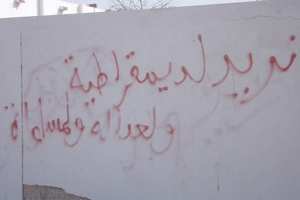 نريد لديمقراطية
ولعدالة ولمساواة